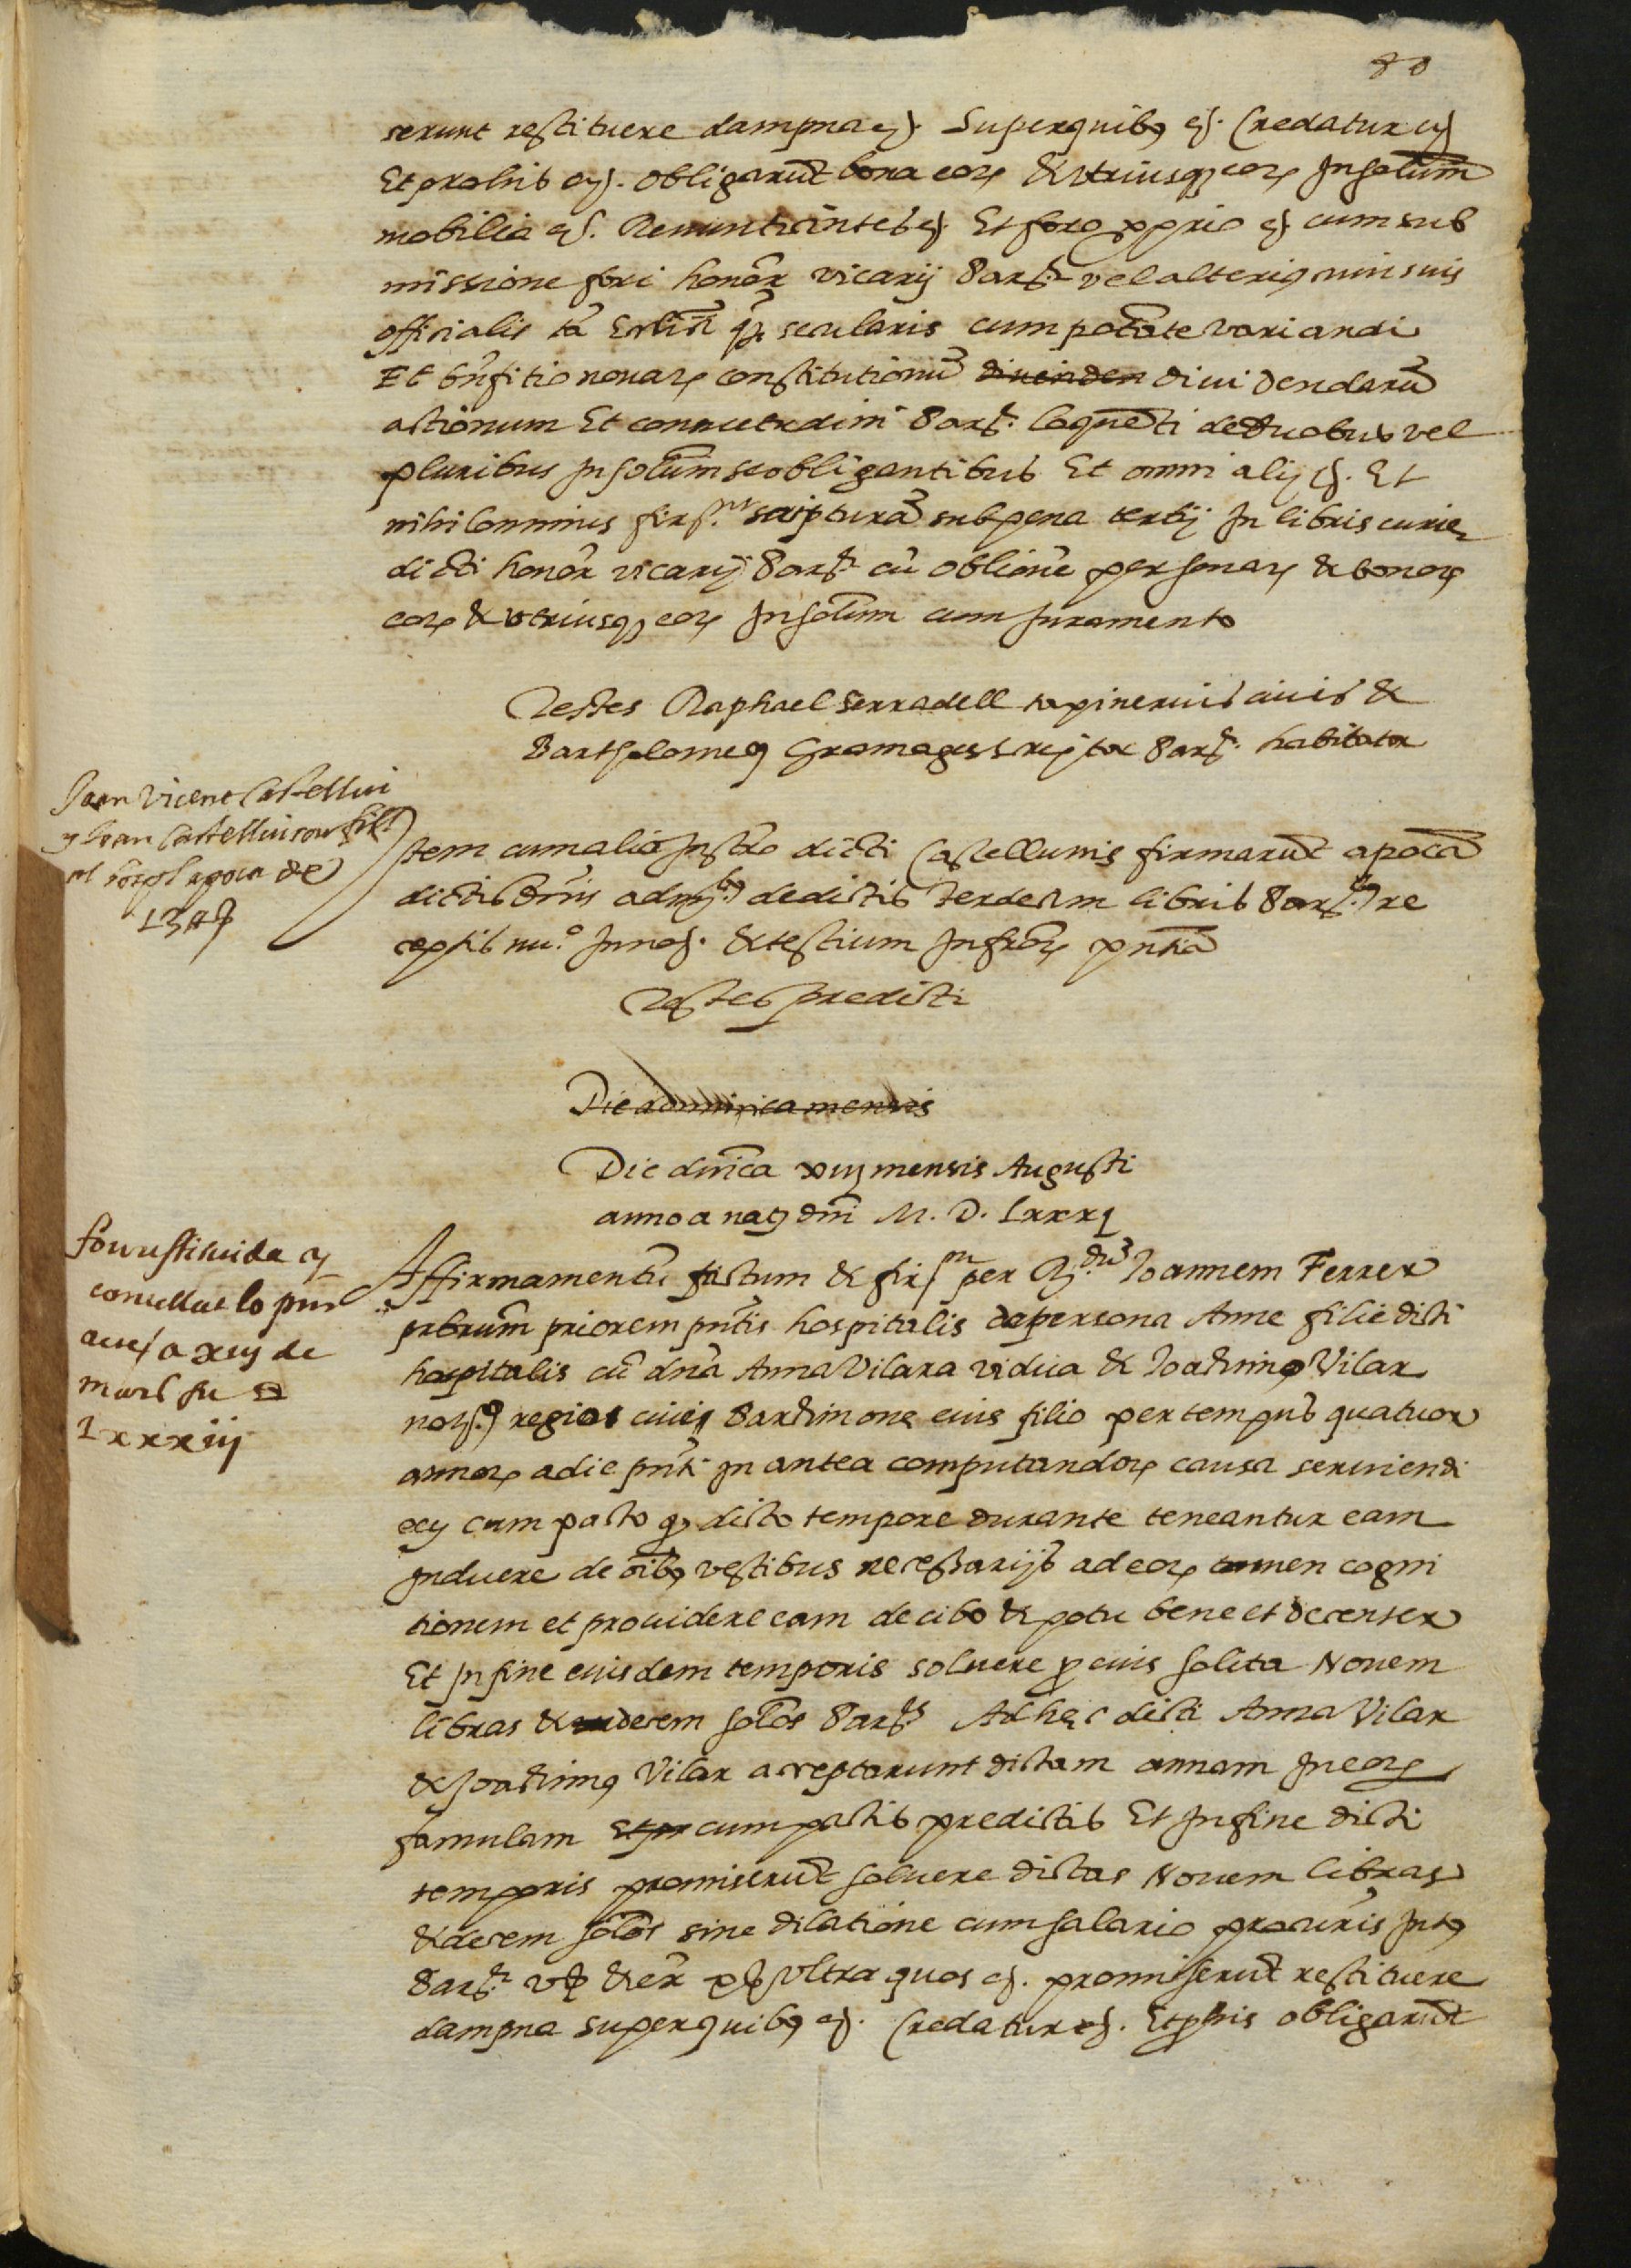 80
serunt restituere dampna ec. Super quibus ec. Credatur ec
Et pro his ec. obligarut bona eor & utriusq eor Insolum
mobilia ec. Renuntiantes ec. Et foro pprio ec cum sub
missione fori honor vicarij Bar vel alterius cuiusuis
officialis ta q secularis cum potate variandi
Et bnfitio novar constitutionu dividen dividendaru
actionum Et consuetudini Bar. loqueti de duobus vel
pluribus Insolum se obligantibus Et omni alij ec. Et
nihilominus fir scriptura sub pena tertij In libris curie
dicti honor vicarij Bar cu oblione personar & bonor
eor & utriusq eor Insolum cum Juramento
Testes Raphael Serradell tapinerius civis &
Bartholomeus Gramages Bar. habitator
Joan Vicent Castellvi
y Joan Castellvi son fill
apoca de
Item cum alio Instro dicti Castellvins firmarut apoca
dictis dnis adm de dictis terdecim libris Bar re
ceptis nu.o In no. & testium Infror pntia
Testes predicti
Die dominica mensis
Die dnica xiij mensis Augusti
anno a nat dni M. D. Lxxxj
fou restituida
lo prior
a xiij de
mars
Lxxxiij
Affirmamentu factum & fir per R.du Joannem Ferrer
prbrum priorem pntis hospitalis de persona Anne filie dicti
hospitalis cu dna Anna Vilara vidua & Joachimo Vilar
not regio civi Barchinone eius filio per tempus quatuor
annor a die pnti In antea computandor causa serviendi
ec cum pacto q dicto tempore durante teneantur eam
Induere de oibus vestibus necessarijs ad eor tamen cogni
tionem et providere eam de cibo & potu bene et decenter
Et In fine eiusdem temporis solvere p eius solita Novem
libras & decem solos Bar Ad hec dicti Anna Vilar
& Joachimus Vilar acceptarunt dictam annam In eor
famulam Et p cum pactis predictis Et In fine dicti
temporis promiserut solvere dictas Novem libras
& decem solos sine dilatione cum salario procuris Intus
Bar. Ultra quos ec. promiserut restituere
dampna super quibus ec. Credatur ec. Et p his obligarut